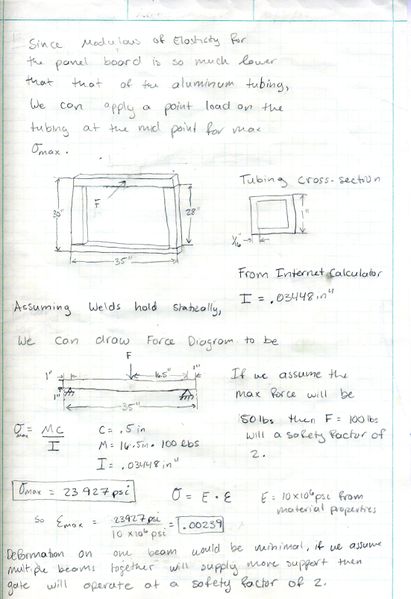 Since Modulous of Elasticity for
the panel board is so much lower
that that of the aluminum tubing,
We can apply a point load on the
tubing at the mid point for max
σmax.
Tubing cross-section
30"
F
28"
35"
1"
1/16"
From Internet Calculator
I = .03448 in⁴
Assuming Welds hold statically,
We can draw Force Diagram to be
F
1" 16.5" 1"
1"
35"
If we assume the
max force will be
50 lbs then F = 100 lbs
will a safety factor of
2.
σmax = MC/I
C = .5 in
M = 16.5in · 100 lbs
I = .03448 in⁴
σmax = 23927 psi
σ = E · ε
E = 10x10⁶ psi from
material properties
So εmax = 23927 psi / 10 x10⁶ psi = .00239
Deformation on one beam would be minimal, if we assume
multiple beams together will supply more support then
gate will operate at a safety factor of 2.